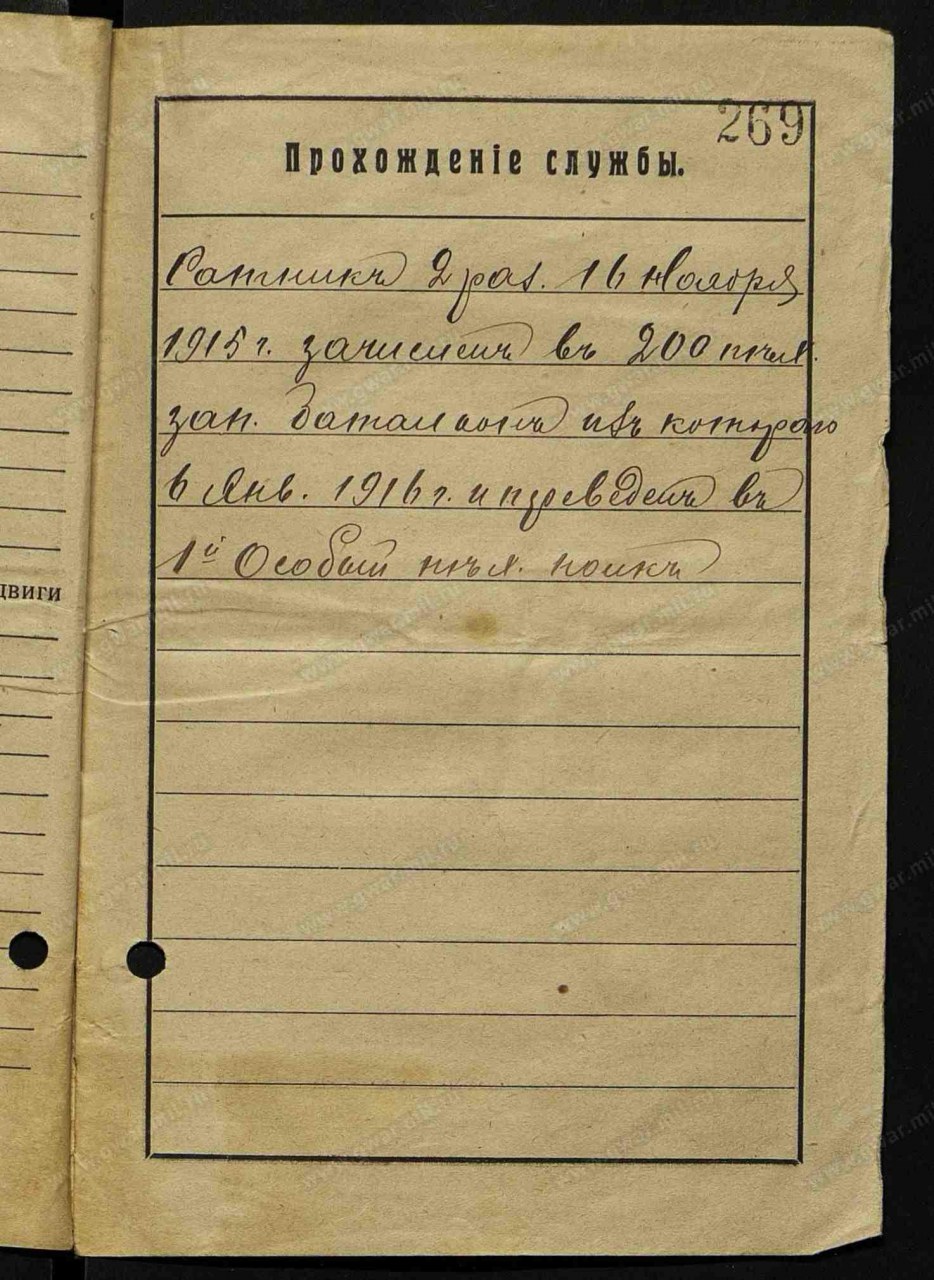 269
Прохожденіе службы.
Ратникъ 2 раз. 16 Ноября
1915 г. зачисленъ въ 200 пѣх.
зап. баталіонъ изъ котораго
6 Янв. 1916 г. и переведенъ въ
1й Особый пѣх. полкъ
двиги
www.gwar.mil.ru